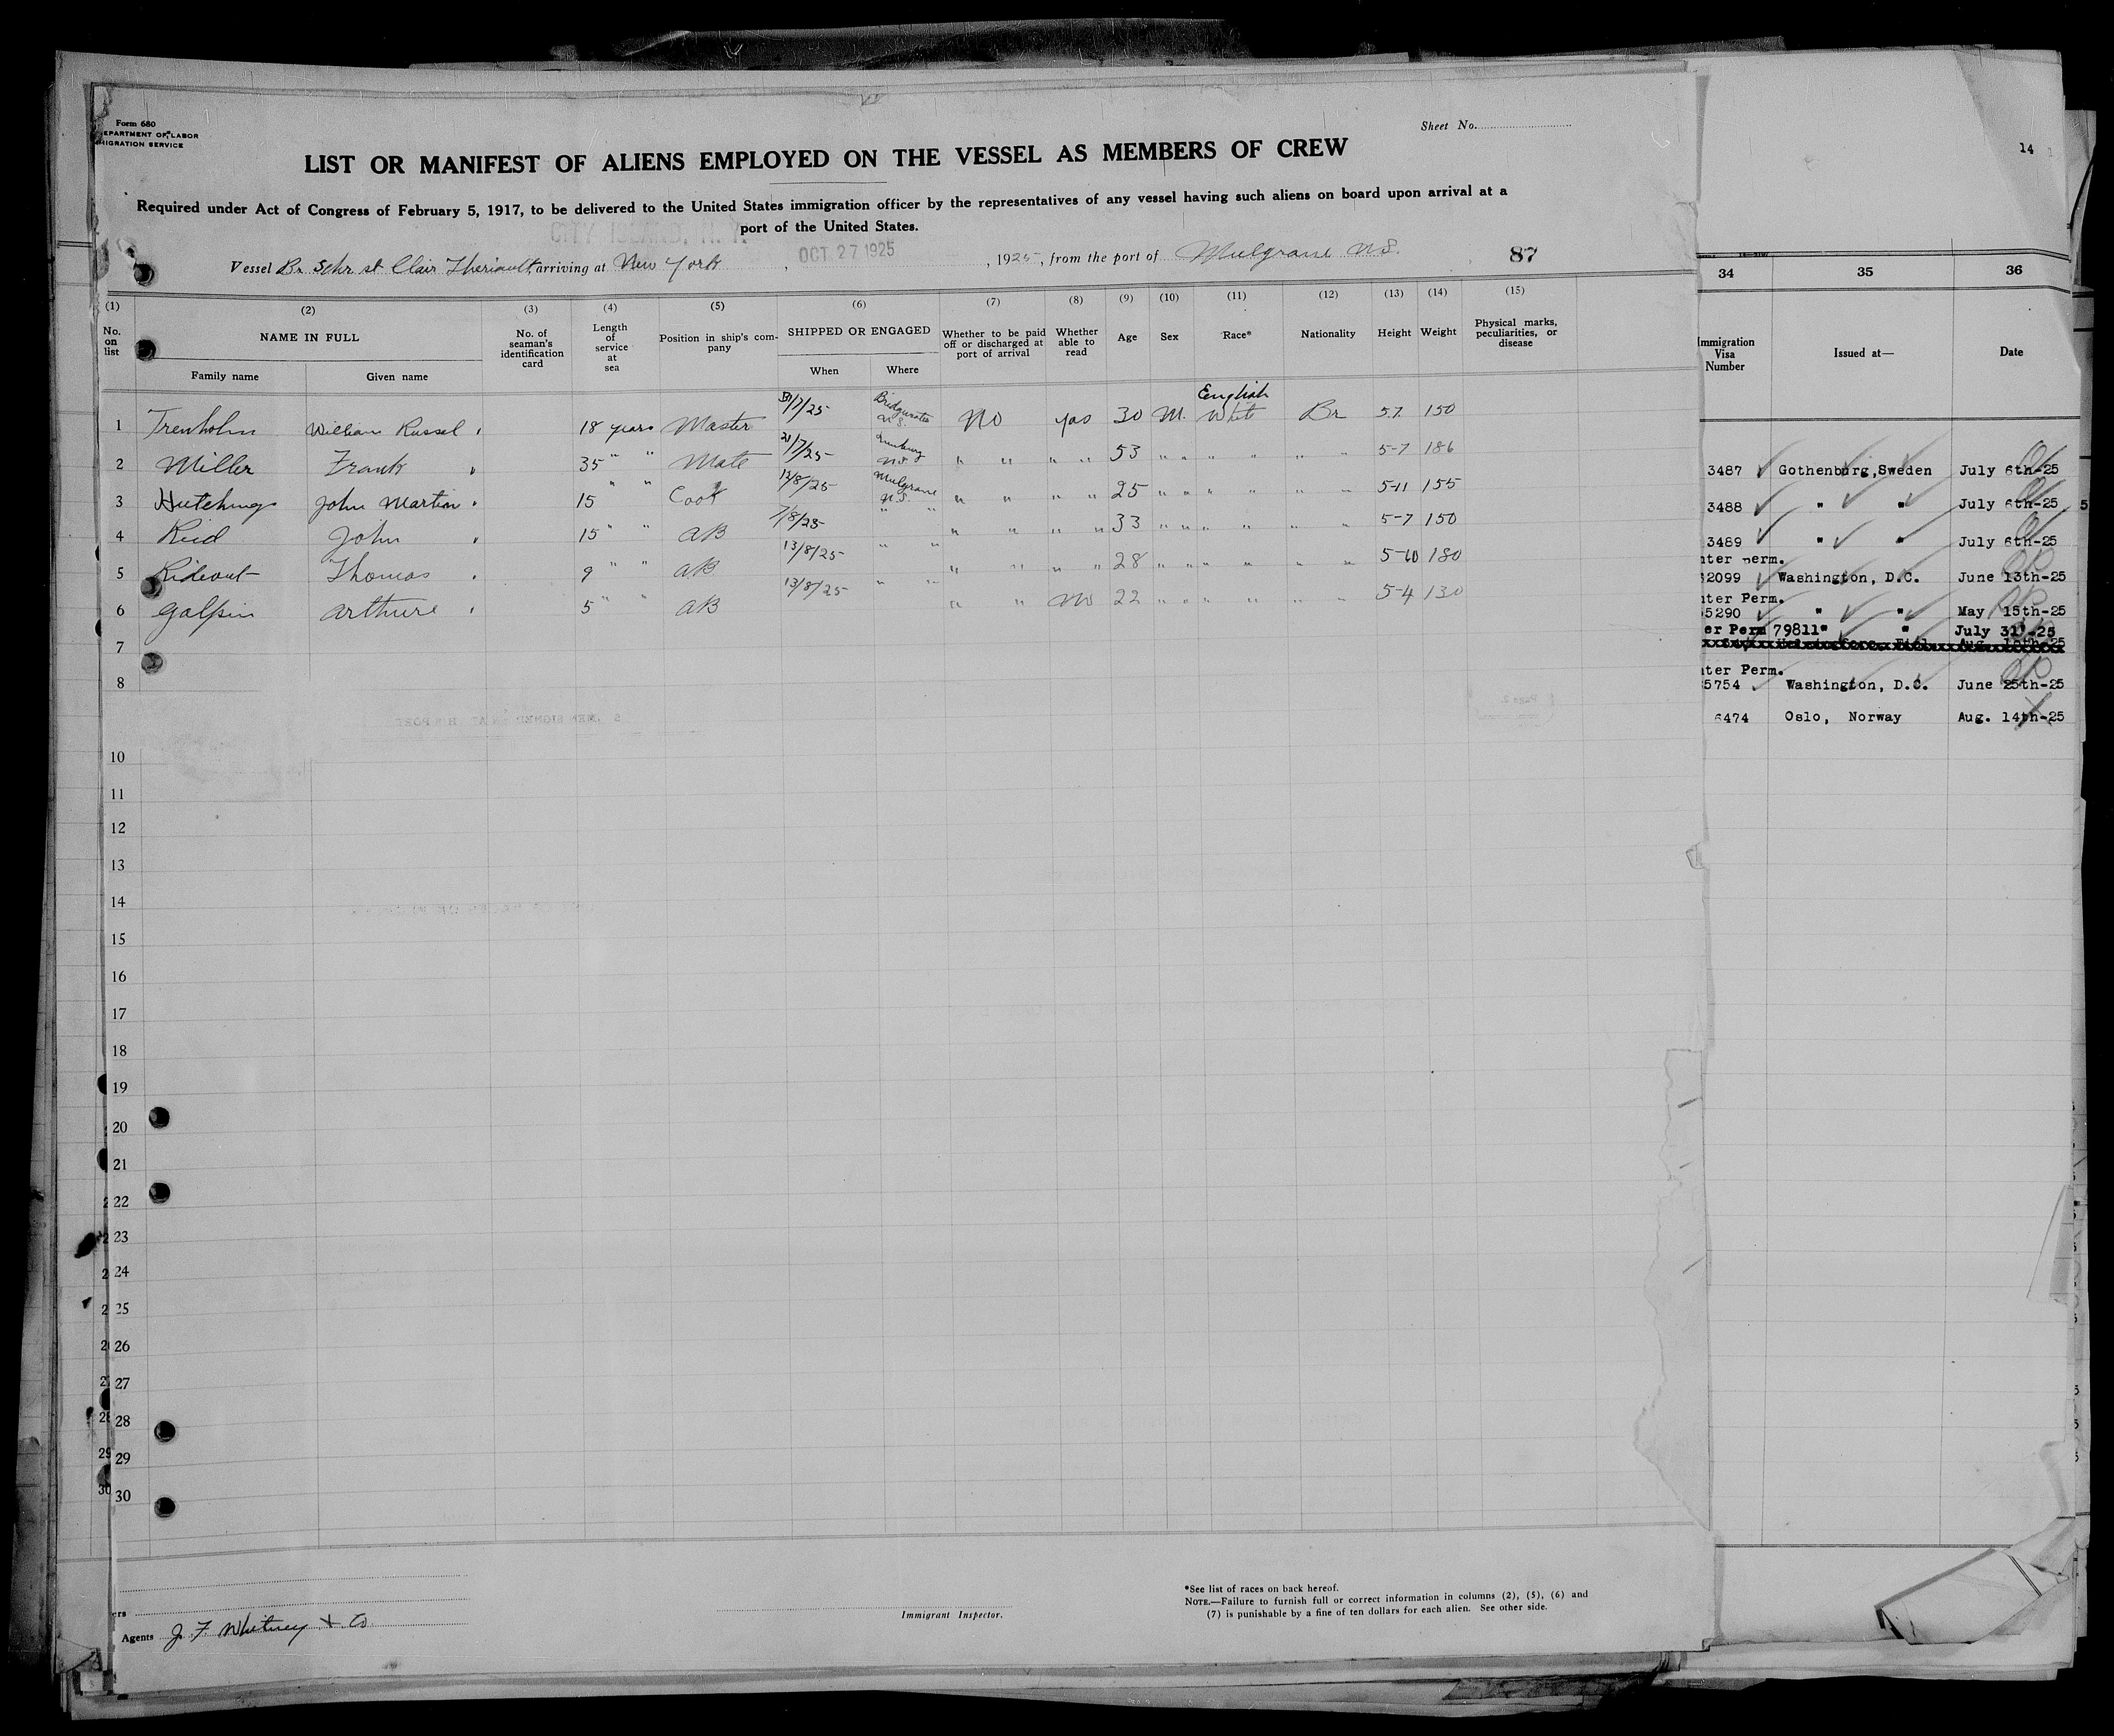 Form 680
DEPARTMENT OF LABOR
MIGRATION SERVICE
Sheet No.
14
LIST OR MANIFEST OF ALIENS EMPLOYED ON THE VESSEL AS MEMBERS OF CREW
Required under Act of Congress of February 5, 1917, to be delivered to the United States immigration officer by the representatives of any vessel having such aliens on board upon arrival at a
port of the United States.
CITY ISLAND, N. Y.
OCT 27 1925
Vessel Br Schr St Clair Theriault, arriving at New York, 1925, from the port of Mulgrave N.S. 87
(1) (2) (3) (4) (5) (6) (7) (8) (9) (10) (11) (12) (13) (14) (15)
No. on list NAME IN FULL No. of seaman's identification card Length of service at sea Position in ship's company SHIPPED OR ENGAGED Whether to be paid off or discharged at port of arrival Whether able to read Age Sex Race* Nationality Height Weight Physical marks, peculiarities, or disease
Family name Given name When Where
1 Trenholm William Russel 18 years Master 30/7/25 Bridgwater N.S. No yes 30 M. English Whit Br 5.7 150
2 Miller Frank 35 " " Mate 21/7/25 Lunburg N.S. " " " " 53 " " " " " " 5-7 186
3 Hutchings John Martin 15 " " Cook 12/8/25 Mulgrave N.S. " " " " 25 " " " " " " 5-11 155
4 Reid John 15 " " AB 7/8/25 " " " " " " 33 " " " " " " 5-7 150
5 Rideout Thomas 9 " " AB 13/8/25 " " " " " " 28 " " " " " " 5-10 180
6 Galpin Arthure 5 " " AB 13/8/25 " " " " No 22 " " " " " " 5-4 130
7
8
10
11
12
13
14
15
16
17
18
19
20
21
22
23
24
25
26
27
28
29
30
34 35 36
Immigration Visa Number Issued at— Date
3487 Gothenburg, Sweden July 6th-25
3488 " " July 6th-25
3489 " " July 6th-25
nter perm.
2099 Washington, D.C. June 13th-25
nter Perm.
5290 " " May 15th-25
er Perm 79811 " " July 31'-25
nter Perm.
5754 Washington, D.C. June 25th-25
6474 Oslo, Norway Aug. 14th-25
ers
Agents J. F. Whitney & Co
Immigrant Inspector.
*See list of races on back hereof.
NOTE.—Failure to furnish full or correct information in columns (2), (5), (6) and
(7) is punishable by a fine of ten dollars for each alien. See other side.